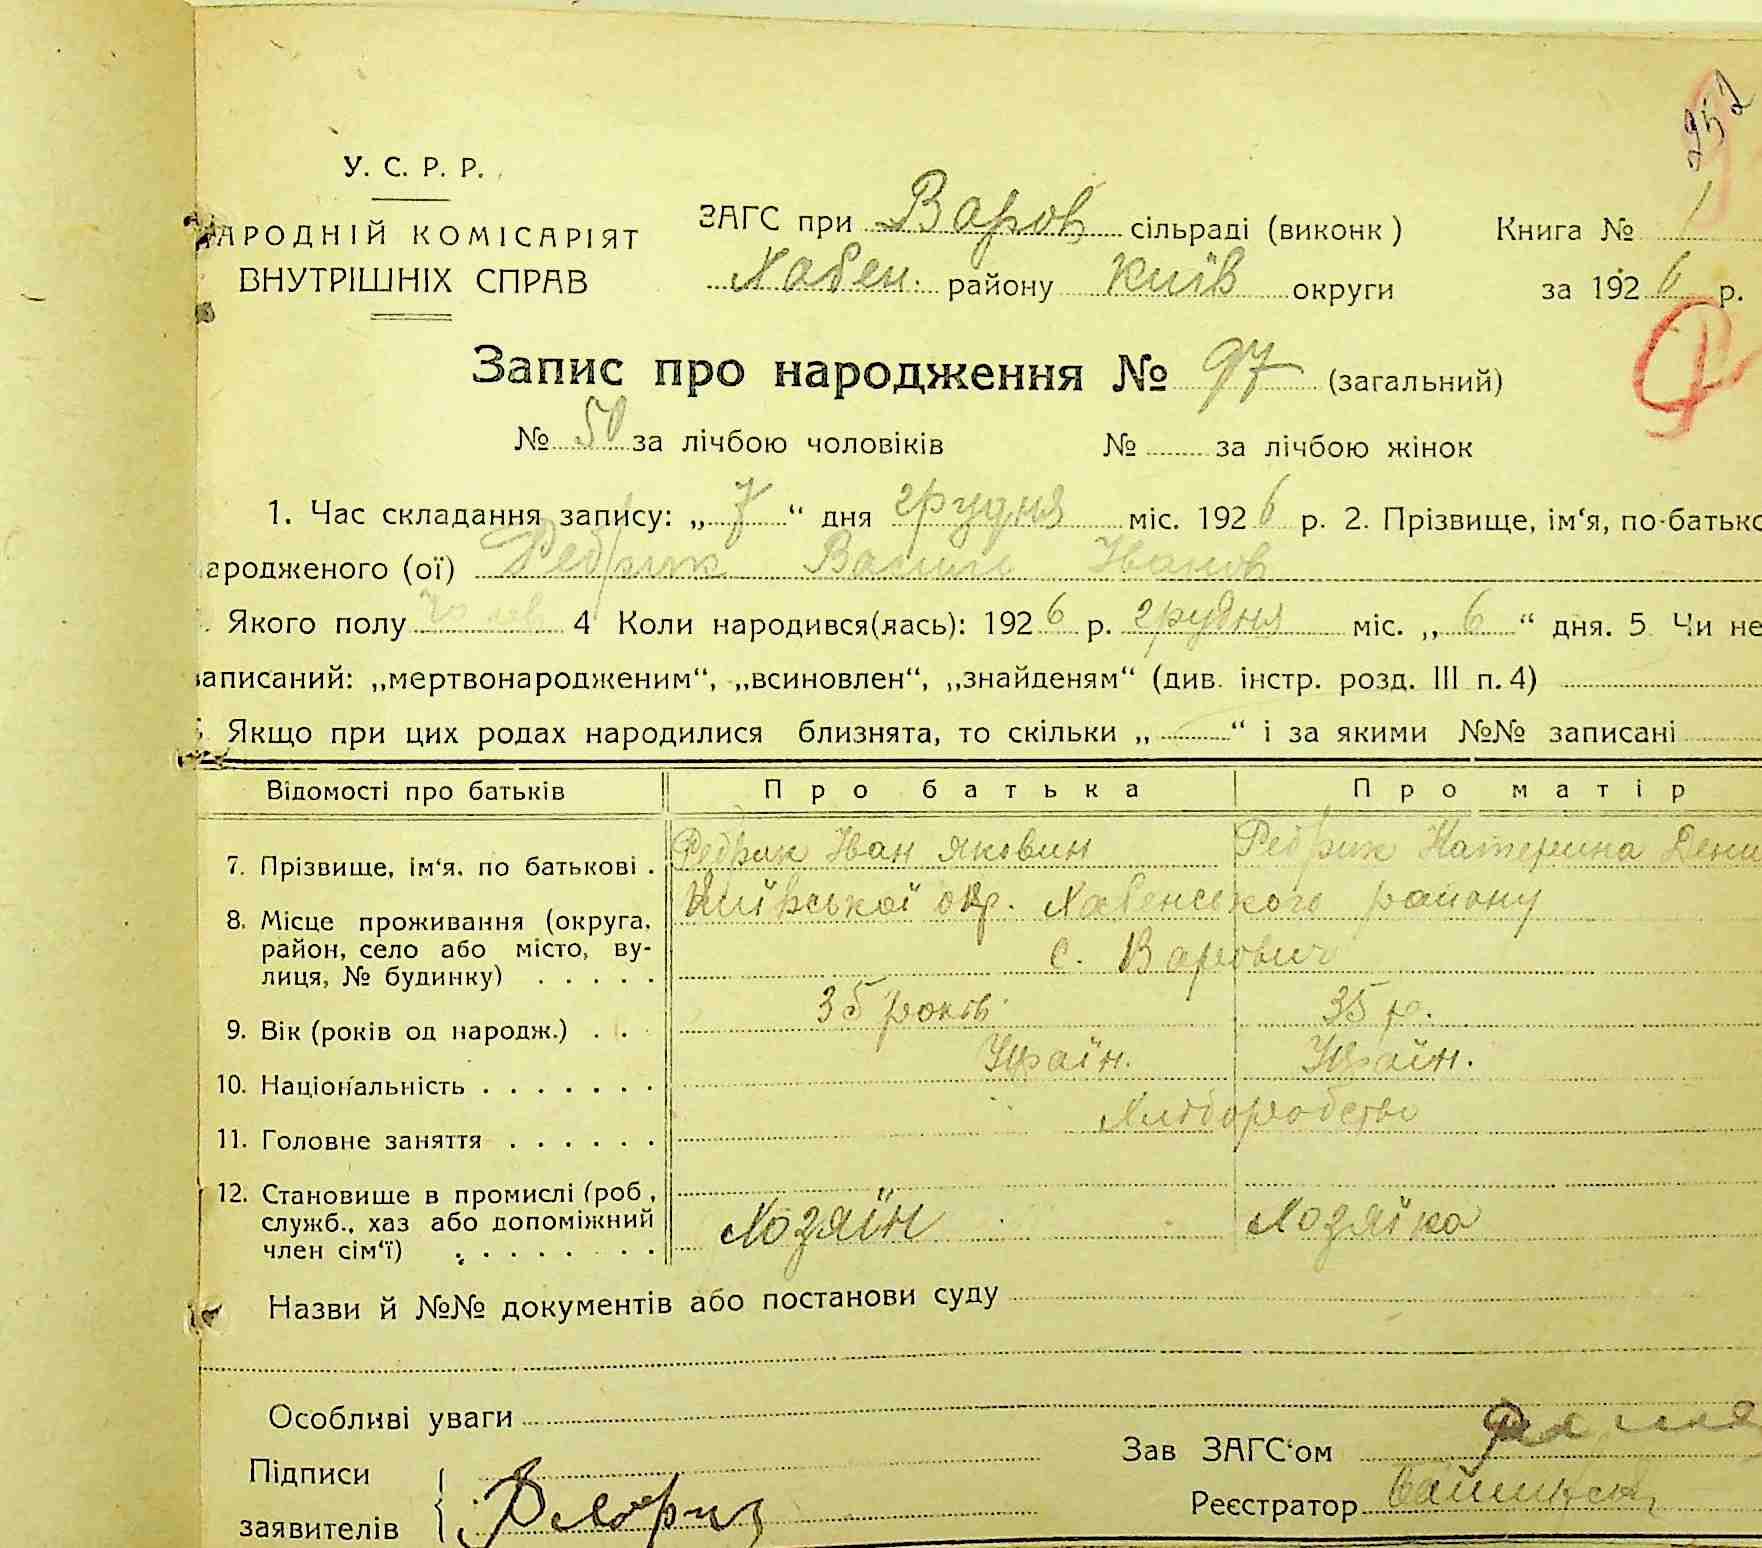 252
У. С. Р. Р.
АРОДНІЙ КОМІСАРІЯТ
ВНУТРІШНІХ СПРАВ
ЗАГС при Варов сільраді (виконк) Книга № 1
Хабен. району Київ округи за 1926 р.
Запис про народження № 97 (загальний)
№ 50 за лічбою чоловіків № за лічбою жінок
1. Час складання запису: „7“ дня грудня міс. 1926 р. 2. Прізвище, ім‘я, по-батько
ародженого (ої) Редрик Василь Іванов
Якого полу чолов 4 Коли народився(лась): 1926 р. грудня міс. „6“ дня. 5 Чи не
записаний: „мертвонародженим“, „всиновлен“, „знайденям“ (див. інстр. розд. III п. 4)
Якщо при цих родах народилися близнята, то скільки „ “ і за якими №№ записані
Відомості про батьків Про батька Про матір
7. Прізвище, ім‘я, по батькові . Редрик Іван Яковин Редрик Катерина Дени
8. Місце проживання (округа, Київської окр. Хабенського району
район, село або місто, ву-
лиця, № будинку) . . . . . с. Варович
9. Вік (років од народж.) . . . 35 років 35 р.
10. Національність . . . . . . . Україн. Україн.
11. Головне заняття . . . . . . Хліборобство
12. Становище в промислі (роб.,
служб., хаз або допоміжний Хозяїн Хозяїка
член сім‘ї) . . . . . . . .
Назви й №№ документів або постанови суду
Особливі уваги
Зав ЗАГС‘ом
Підписи
Реєстратор
заявителів